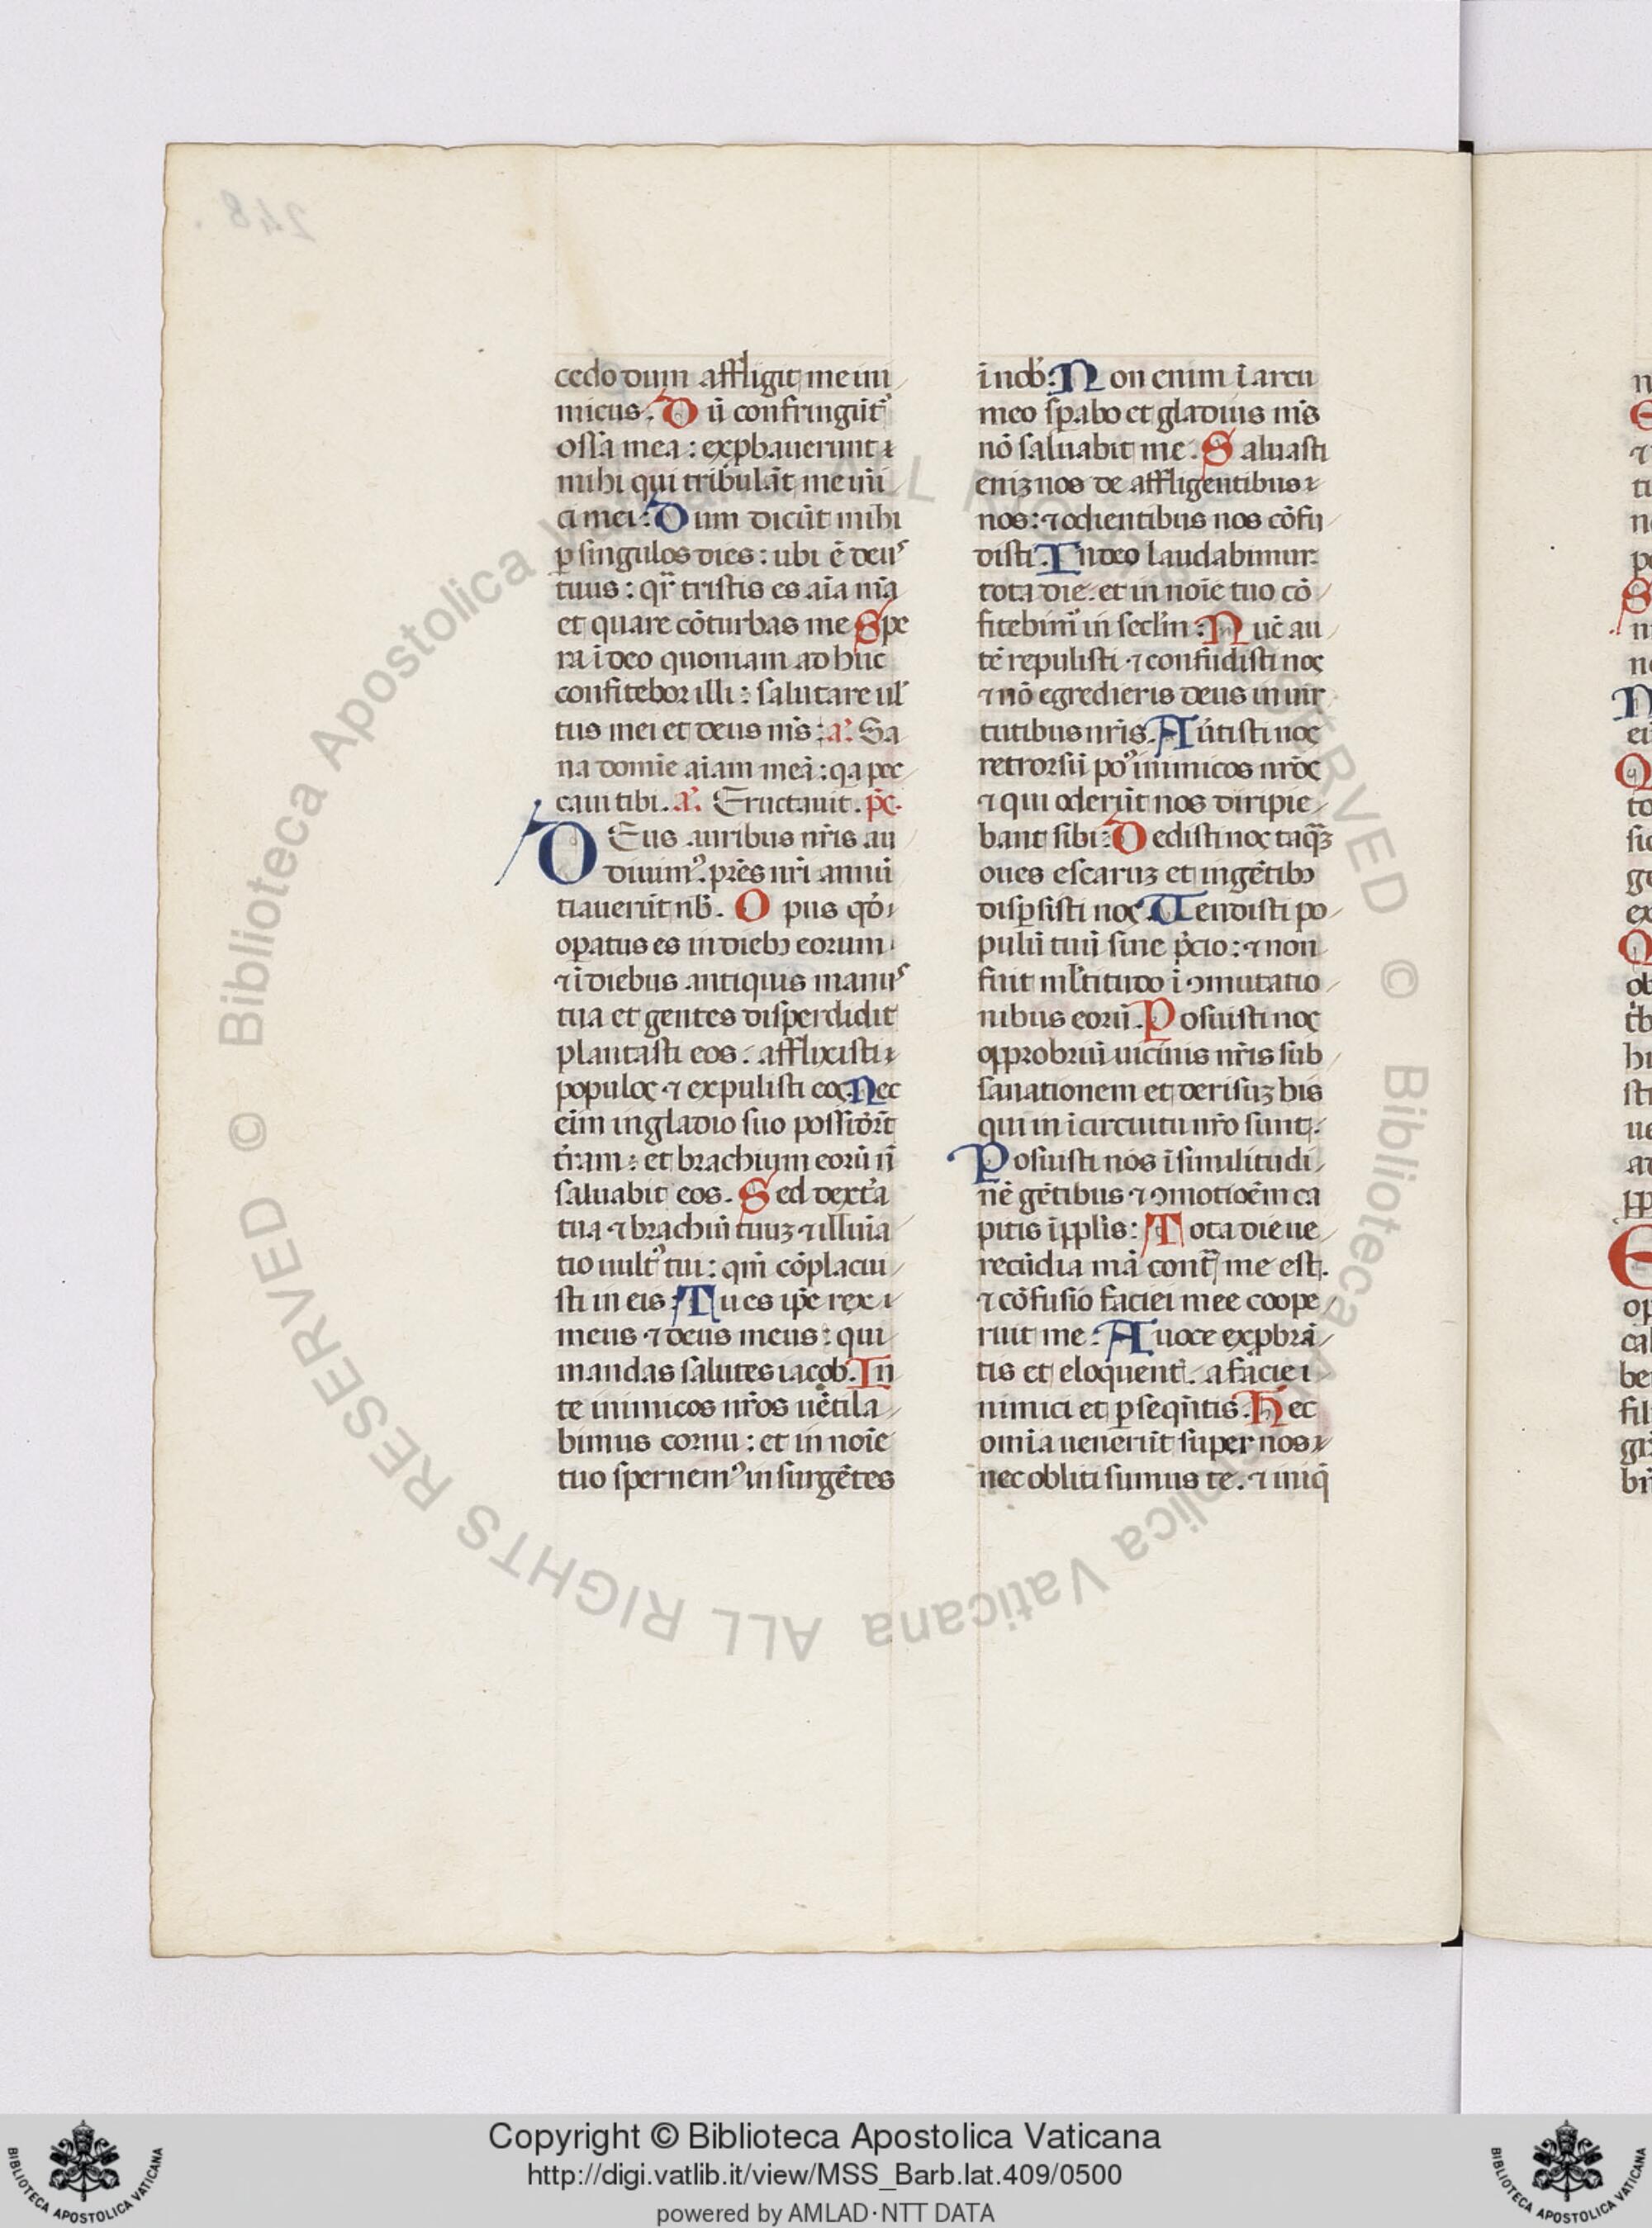 248.
cedo dum affligit me ini
micus. Dū confringūt᷑
ossa mea: exꝓbauerunt
mihi qui tribulāt me inī
ci mei: Dum dicūt mihi
ꝑ singulos dies: ubi ē deus
tuus: qr̄ tristis es aīa mā
et quare cōturbas me Spe
ra ī deo quoniam ad huc
confitebor illi: salutare ul̄
tus mei et deus ms̄: a᷑. Sa
na domīe aīam meā: qa pec
caui tibi. a᷑. Eructauit. ps̄.
DEus auribus nr̄is au
diuimꝰ. pr̄es nr̄i annū
tiauerūt nb̄. Opus qd̄
oꝑatus es in diebꝫ eorum
⁊ ī diebus antiquis manus
tua et gentes disperdidit
plantasti eos. afflixisti
populos ⁊ expulisti eos. Nec
eīm in gladio suo possider̄t
tr̄am: et brachium eorū n̄
saluabit eos. Sed dext̄a
tua ⁊ brachiū tuuꝫ ⁊ illuīa
tio uultꝰ tui: qm̄ cōplacui
sti in eis: Tu es ip̄e rex
meus ⁊ deus meus: qui
mandas salutes iacob. In
te inimicos nr̄os uētila
bimus cornu: et in noīe
tuo spernemꝰ insurgētes
ī nob̄: Non enim ī arcu
meo sꝑabo et gladius ms̄
nō saluabit me. Saluasti
eniꝫ nos de affligentibus
nos: ⁊ odientibus nos cōfu
disti. In deo laudabimur
tota die. et in noīe tuo cō
fitebimꝰ in secl̄m: Nūc au
tē repulisti ⁊ confudisti nos
⁊ nō egredieris deus in uir
tutibus nr̄is. Au̇tisti nos
retrorsū poꝰ inimicos nr̄os
⁊ qui oderūt nos diripie
bant sibi: Dedisti nos tāqꝫ
oues escaruꝫ et in gētibꝫ
disꝑsisti nos. Uendisti po
pulū tuū sine p̄cio: ⁊ non
fuit ml̄titudo ī ꝯmutatio
nibus eorū. Posuisti nos
opprobriū uicinis nr̄is sub
sanationem et derisuꝫ his
qui in ī circuitu nr̄o sunt.
Posuisti nos ī similitudi
nē gētibus ⁊ ꝯmotioēm ca
pitis ī ppl̄is: Tota die ue
recūdia mā cont̄ me est.
⁊ cōfusio faciei mee coope
ruit me: A uoce exꝓbrā
tis et eloquent̄. a facie i
nimici et ꝑseqn̄tis. Hec
omīa uenerūt super nos
nec obliti sumus te. ⁊ iniq̄
© Biblioteca Apostolica Vaticana ALL RIGHTS RESERVED
Copyright © Biblioteca Apostolica Vaticana
http://digi.vatlib.it/view/MSS_Barb.lat.409/0500
powered by AMLAD·NTT DATA
BIBLIOTECA APOSTOLICA VATICANA
BIBLIOTECA APOSTOLICA VATICANA